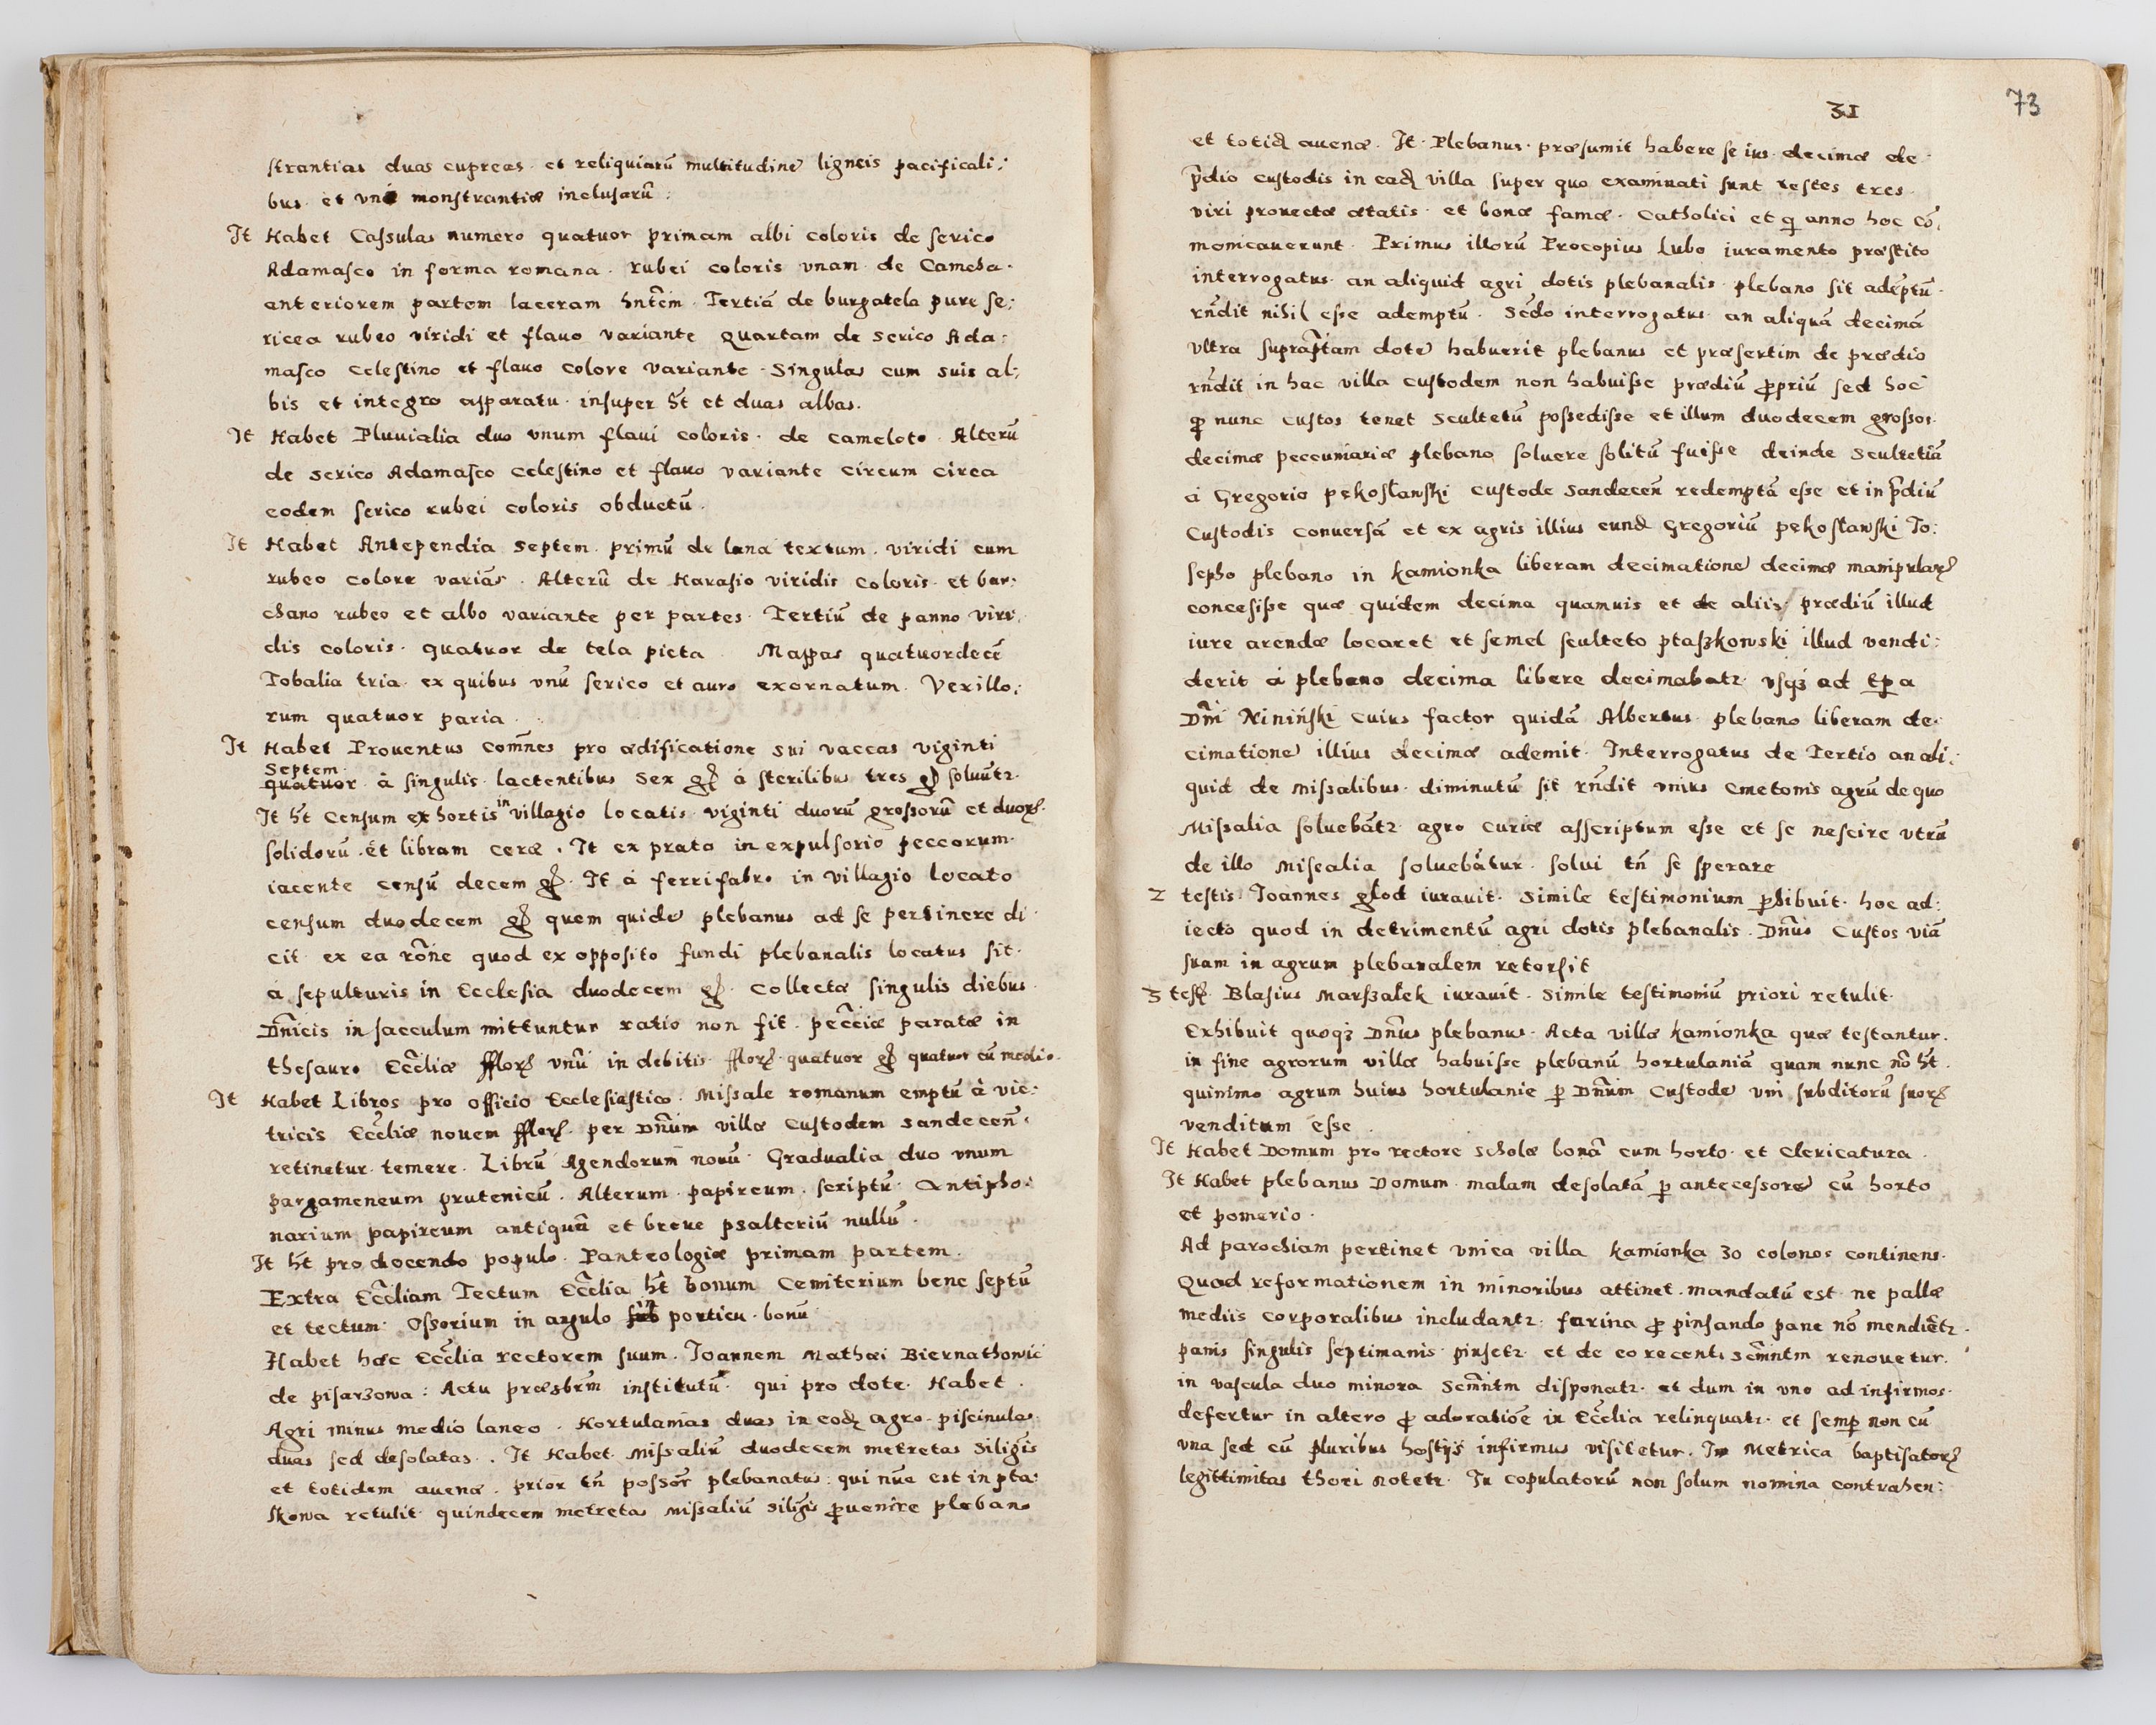 strantias duas cupreas et reliquiarū multitudine ligneis pacificali:
bus et vni monstrantiæ inclusarū:
It Habet Casulas numero quatuor primam albi coloris de serico
Adamasco in forma romana. rubei coloris vnam de Camcha.
anteriorem partem laceram hntem. Tertiā de burgatela pure se:
ricea rubeo viridi et flauo variante quartam de serico Ada:
masco celestino et flauo colore variante. Singulas cum suis al:
bis et integro apparatu. insuper ht et duas albas.
It Habet Pluuialia duo vnum flaui coloris. de cameloto. Alterū
de serico Adamasco celestino et flauo variante circum circa
eodem serico rubei coloris obductū.
It Habet Antependia septem. primū de lana textum. viridi cum
rubeo colore variās. Alterū de Harasio viridis coloris et bar:
chano rubeo et albo variante per partes. Tertiū de panno viri:
dis coloris. quatuor de tela picta. Mappas quatuordecē
Tobalia tria. ex quibus vnū serico et auro exornatum. Vexillo:
rum quatuor paria.
It Habet Prouentus comnes pro ædificatione sui vaccas viginti
septem
quatuor à singulis lactentibus sex gr̃ à sterilibus tres gr̃ soluūtr.
It ht Censum ex hortis in villagio locatis viginti duorū grossorū et duorȝ
solidorū et libram ceræ. It ex prato in expulsorio peccorum
iacente censū decem gr̃. It à ferrifabro in villagio locato
censum duodecem gr̃ quem quidē plebanus ad se pertinere di
cit ex ea rōne quod ex opposito fundi plebanalis locatus sit.
a sepulturis in Ecclesia duodecem gr̃. Collectæ singulis diebus
Dnicis in sacculum mittuntur ratio non fit. pecciæ paratæ in
thesauro Eccliæ fflorȝ vnū in debitis fflorȝ quatuor gr̃ quatuor cū medio.
It Habet Libros pro officio Ecclesiastico. Missale romanum emptū à vic:
tricis Eccliæ nouem fflorȝ per Dnum villæ Custodem sandecen̄.
retinetur temere. Librū Agendorum nouū. Gradualia duo vnum
pargameneum prutenicū. Alterum papireum scriptū. Antipho:
narium papireum antiquū et breue psalteriū nullū.
It ht pro docendo populo. Panteologiæ primam partem.
Extra Eccliam Tectum Ecclia ht bonum Cemiterium bene septū
et tectum. Ossorium in angulo sub in porticu bonū.
Habet hæc Ecclia rectorem suum. Joannem Mathæi Biernathowic
de pisarzowa: Actu præsbrm institutū qui pro dote Habet.
Agri minus medio laneo. Hortulanias duas in eodȝ agro. piscinulas
duas sed desolatas. It Habet Missaliū duodecem metretas siligīs
et totidem auenæ. prior tn̄ possor̄ plebanatus: qui nūc est in pta:
skowa retulit quindecem metretas Missaliū siligīs ꝓuenire plebano
31
73
et totidȝ auenæ. It Plebanus præsumit habere se ius decimæ de
pdio custodis in eadȝ villa super quo examinati sunt testes tres
viri prouectæ ætatis et bonæ famæ. Catholici et qi anno hoc cō:
monicauerunt. Primus illorū Procopius lubo iuramento præstito
interrogatus an aliquid agri dotis plebanalis plebano sit ademptū.
rn̄dit nihil esse ademptū. Scdo interrogatus an aliquā decimā
vltra supraptam dotē habuerit plebanus et præsertim de prædio
rn̄dit in hac villa custodem non habuisse prædiū ꝓpriū sed hoc
qȝ nunc custos tenet scultetū possedisse et illum duodecem grossos
decimæ peccuniariæ plebano soluere solitū fuisse deinde scultetiā
à Gregorio pekosławski custode sandecen̄ redemptā esse et in pdiū
Custodis conuersā et ex agris illius eundȝ Gregoriū pekosławski Jo:
sepho plebano in kamionka liberam decimationē decimæ manipularȝ
concesisse quæ quidem decima quamuis et de aliis prædiū illud
iure arendæ locaret et semel sculteto ptaszkowski illud vendi:
derit à plebano decima libere decimabatr vsqȝ ad tpa
Dni Niniński cuius factor quidā Albertus plebano liberam de:
cimationē illius decimæ ademit. Interrogatus de Tertio an ali:
quid de missalibus diminutū sit rn̄dit vnius cmetonis agrū de quo
Missalia soluebātr agro curiæ asscriptum esse et se nescire vtrū
de illo Misealia soluebātur. solui tn̄ se sperare
2 testis Joannes głod iurauit. Simile testimonium phibuit. hoc ad:
iecto quod in detrimentū agri dotis plebanalis. Dnus Custos viā
suam in agrum plebanalem retorsit
3 tesȝ Blasius Marszałek iurauit. Simile testimoniū priori retulit.
Exhibuit quoqȝ Dnus plebanus. Acta villæ kamionka quæ testantur.
in fine agrorum villæ habuisse plebanū hortulaniā quam nunc nō ht.
quinimo agrum huius hortulanie p Dnum Custodē vni subditorū suorȝ
venditum esse.
It Habet Domum pro rectore scholæ bonā cum horto et Clericatura.
It Habet plebanus Domum malam desolatā p antecessorē cū horto
et pomerio.
Ad parochiam pertinet vnica villa kamionka 30 colonos continens.
Quod reformationem in minoribus attinet. mandatū est ne pallæ
mediis corporalibus includantr. farina ꝓ pinsando pane nō mendiētr.
panis singulis septimanis pinsetr et de eo recenti scmntm renouetur.
in vascula duo minora scmntm disponatr. et dum in vno ad infirmos
defertur in altero ꝓ adoratiōe in Ecclia relinquatr. et semp non cū
vna sed cū pluribus hostijs infirmus visitetur. In Metrica baptisatorȝ
legittimitas thori notetr. In copulatorū non solum nomina contrahen: